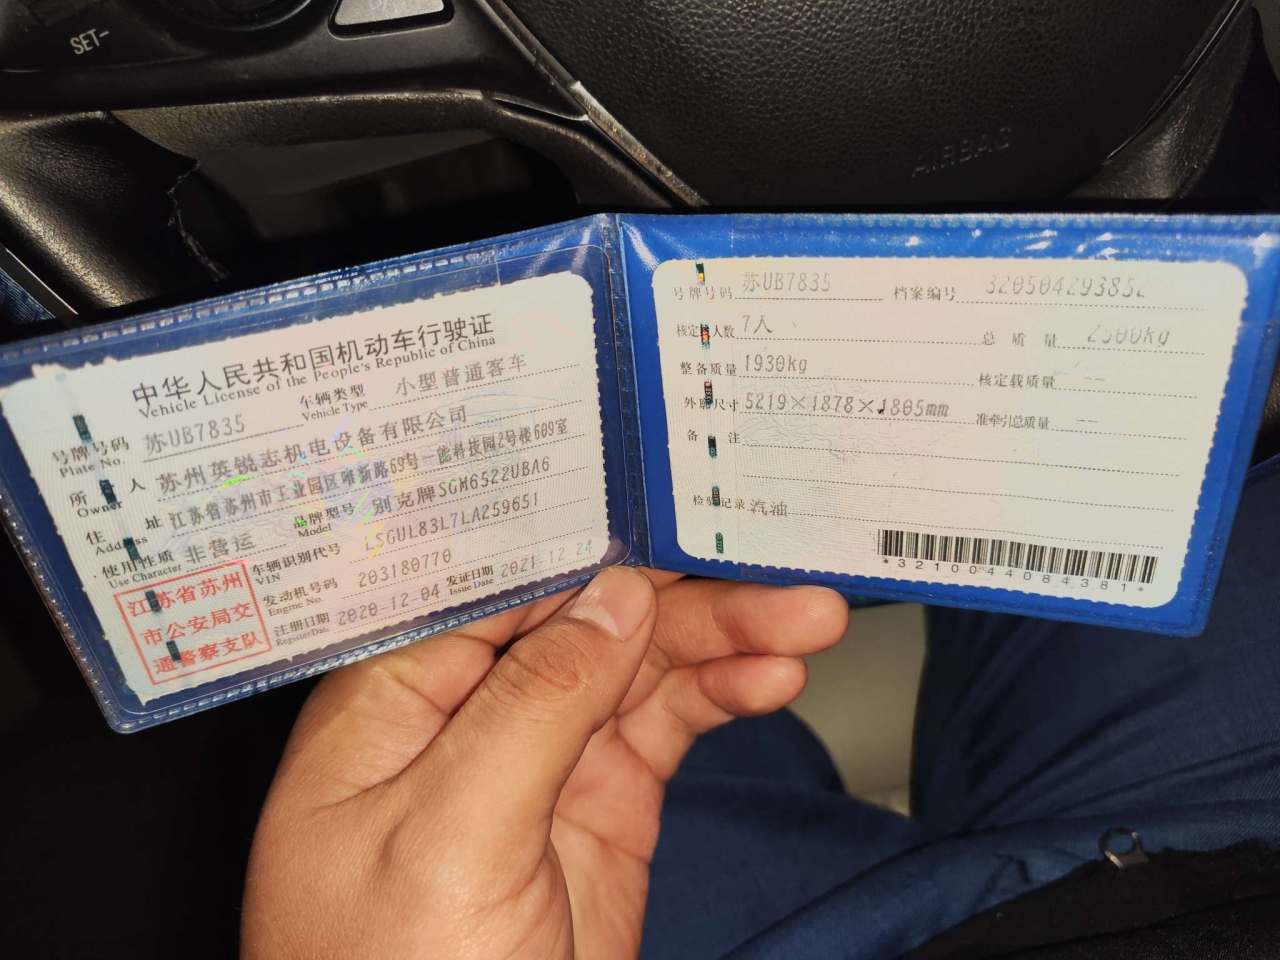 SET-
AIRBAG
中华人民共和国机动车行驶证
Vehicle License of the People's Republic of China
号牌号码 苏UB7835 车辆类型 小型普通客车
Plate No. Vehicle Type
所有人 苏州英锐志机电设备有限公司
Owner
住址 江苏省苏州市工业园区唯新路69号一能科技园2号楼609室
Address
使用性质 非营运 品牌型号 别克牌SGM6522UBA6
Use Character Model
车辆识别代号 LSGUL83L7LA259651
VIN
发动机号码 203180770
Engine No.
注册日期 2020-12-04 发证日期 2021-12-24
RegisterDate Issue Date
江苏省苏州
市公安局交
通警察支队
号牌号码 苏UB7835 档案编号 320504293852
核定载人数 7人 总质量 2500kg
整备质量 1930kg 核定载质量 --
外廓尺寸 5219×1878×1805mm 准牵引总质量 --
备注
检验记录 汽油
*3210044084381*